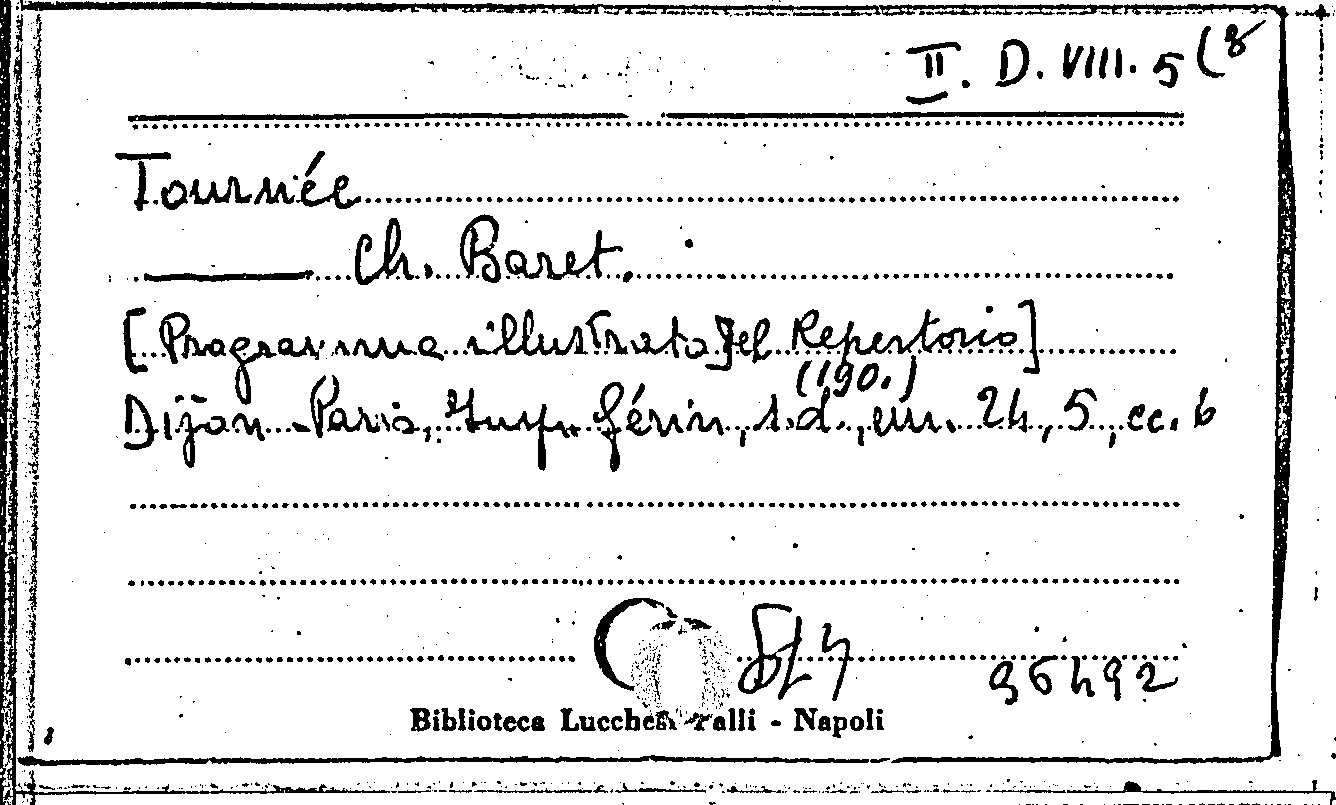 II. D. VIII. 5 (8
Tournée
——— Ch. Baret.
[Programma illustrato del Repertorio]
(190.)
Dijon-Paris, Imp. Gérin, s.d., cm. 24,5, cc. 6
96492
Biblioteca Lucchesi Palli - Napoli